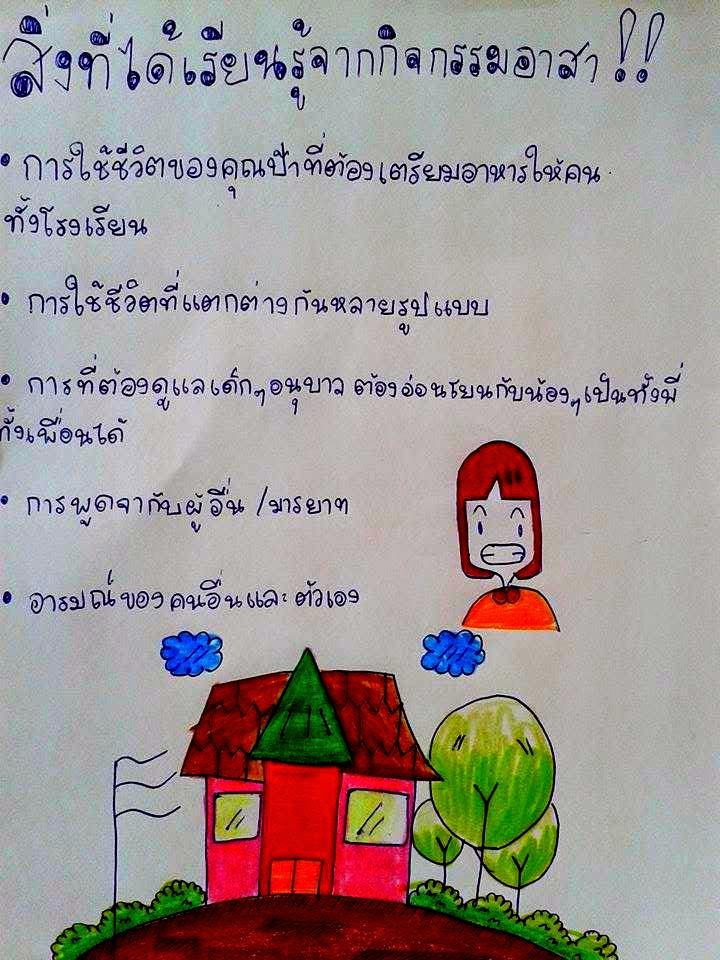 สิ่งที่ได้เรียนรู้จากกิจกรรมอาสา !!
• การใช้ชีวิตของคุณป้าที่ต้องเตรียมอาหารให้คน
ทั้งโรงเรียน
• การใช้ชีวิตที่แตกต่างกันหลายรูปแบบ
• การที่ต้องดูแลเด็กๆอนุบาล ต้องอ่อนโยนกับน้องๆเป็นทั้งพี่
ทั้งเพื่อนได้
• การพูดจากับผู้อื่น /มารยาท
• อารมณ์ของคนอื่นและตัวเอง